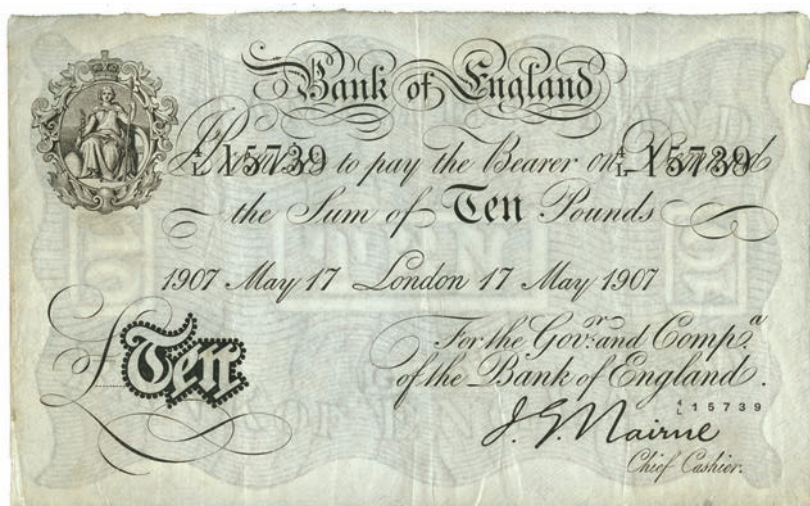 Bank of England
4/L 15739 I Promise to pay the Bearer on Demand 4/L 15739
the Sum of Ten Pounds
1907 May 17 London 17 May 1907
For the Gov.r and Comp.a
£ Ten
of the Bank of England.
4/L 15739
J. G. Nairne
Chief Cashier.